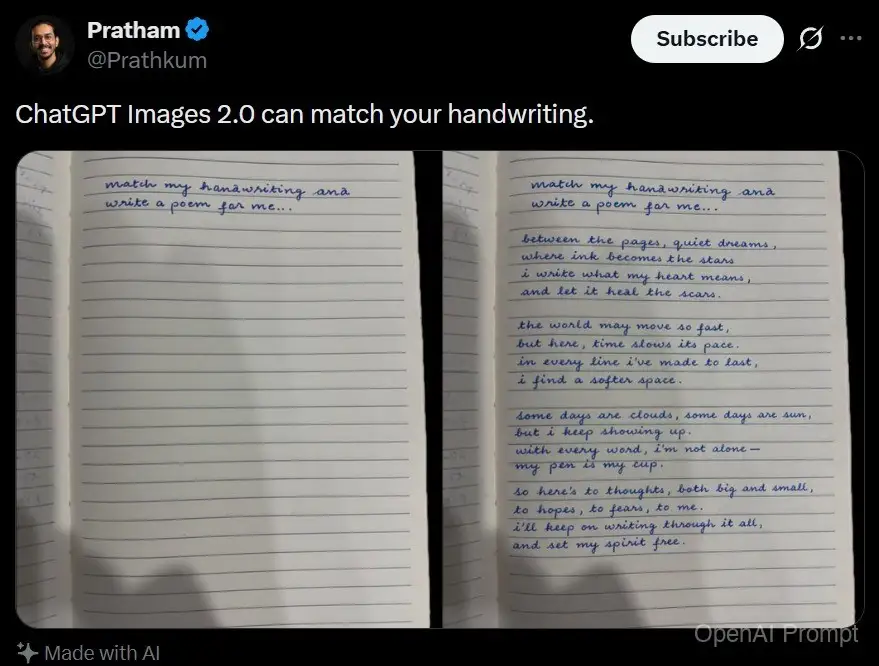 Pratham
@Prathkum
Subscribe
ChatGPT Images 2.0 can match your handwriting.
match my handwriting and
write a poem for me...
match my handwriting and
write a poem for me...
between the pages, quiet dreams,
where ink becomes the stars
i write what my heart means,
and let it heal the scars.
the world may move so fast,
but here, time slows its pace.
in every line i've made to last,
i find a softer space.
some days are clouds, some days are sun,
but i keep showing up.
with every word, i'm not alone—
my pen is my cup.
so here's to thoughts, both big and small,
to hopes, to fears, to me.
i'll keep on writing through it all,
and set my spirit free.
OpenAI Prompt
Made with AI